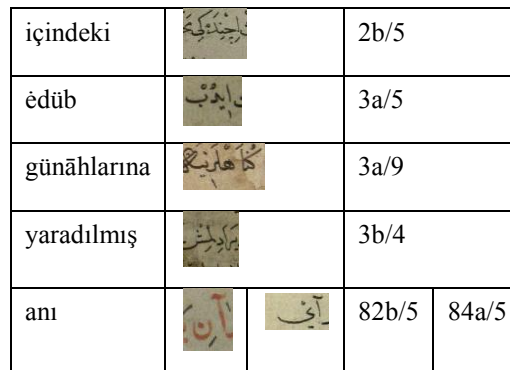 içindeki اِچِنْدَه‌كِى 2b/5
ėdüb اِيدُبْ 3a/5
günāhlarına كُنَاهْلَرِينَه 3a/9
yaradılmış يَرَادِلْمِشْ 3b/4
anı آنِ آنِي 82b/5 84a/5